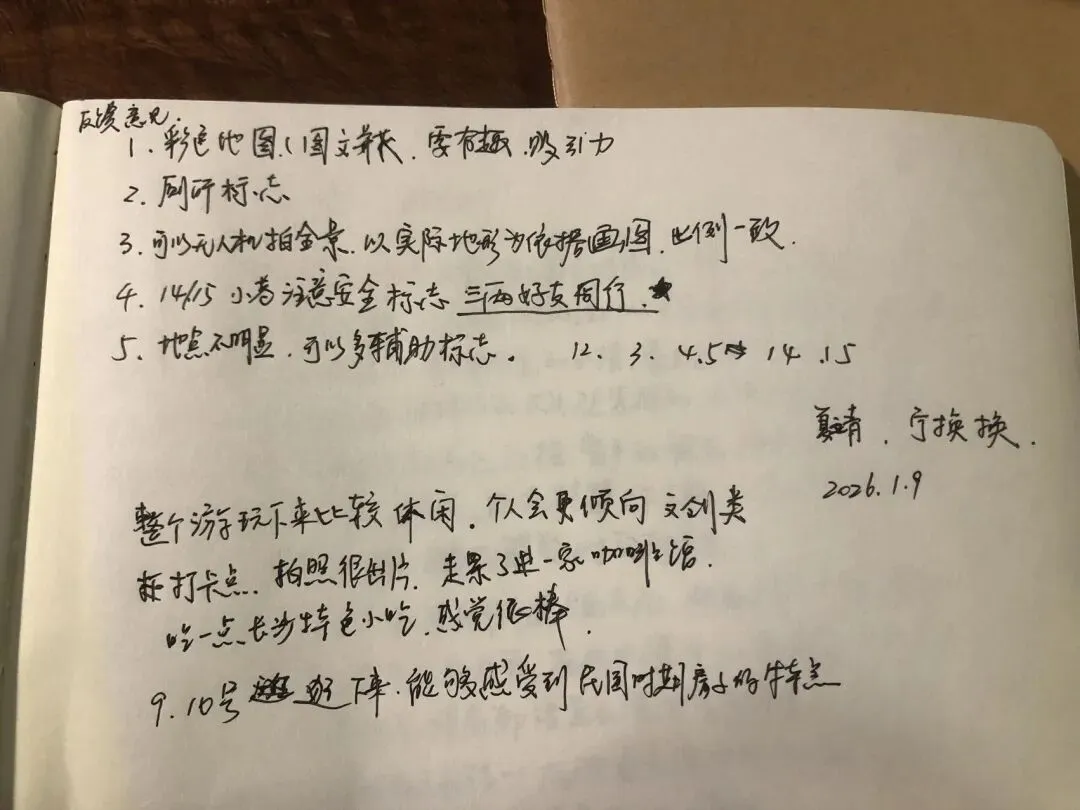 反馈意见.
1、彩色地图、(图文并茂、要有趣、吸引力
2、厕所标志
3、可以无人机拍全景、以实际地形为依据画图、比例一致.
4、14/15 小巷注意安全标志 三两好友同行、★
5、地点不明显、可以多做辅助标志。 12、3、4、5 14、15
夏青、宁换换.
2026.1.9
整个游玩下来比较休闲、个人会更倾向文创类
打卡点、拍照很出片、走累了进一家咖啡馆.
吃一点长沙特色小吃、感觉很棒.
9、10号 逛下来、能够感受到民国时期房子的特点